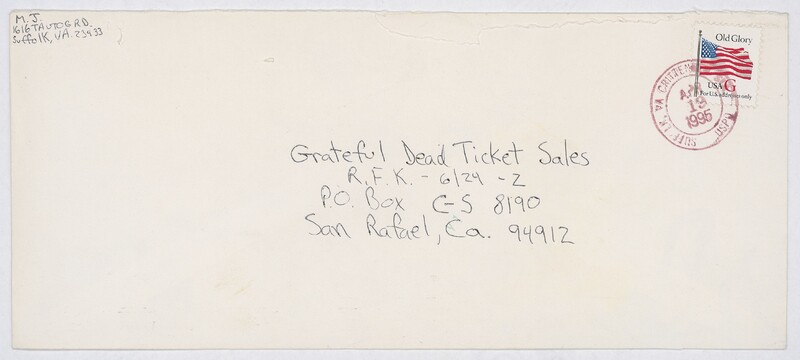 M. J.
1616 TAUTOG RD.
Suffolk, VA. 23433
Old Glory
USA G
For U.S. addresses only
SUFFOLK, VA CRITTEN
APR
19
1995
USPO
Grateful Dead Ticket Sales
R.F.K. - 6/24 - 2
P.O. Box C-S 8190
San Rafael, Ca. 94912